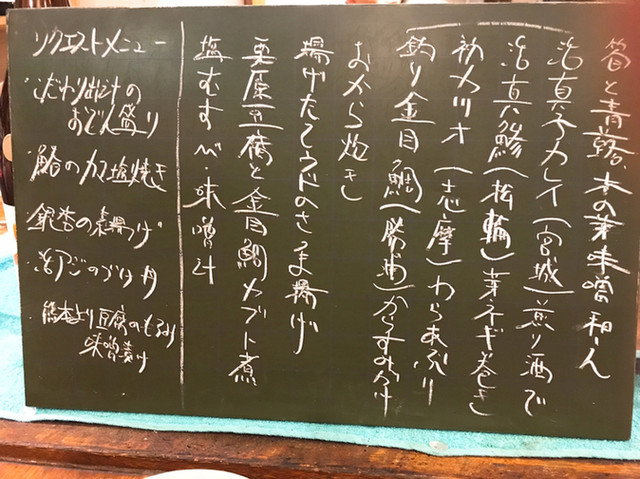 筍と青蕗、木の芽味噌和え
活真子カレイ(宮城)煎り酒で
活真鯵(松輪)芽ネギ巻き
初カツオ(志摩)わらあぶり
釣り金目鯛(勝浦)からすみがけ
おから炊き
揚げたてウドのさつま揚げ
栗原豆腐と金目鯛カブト煮
塩むすび・味噌汁
リクエストメニュー
こだわり出汁の
おでん盛り
のカマ塩焼き
銀杏の素揚げ
活アジのづけ丼
熊本より豆腐のもろみ
味噌漬け